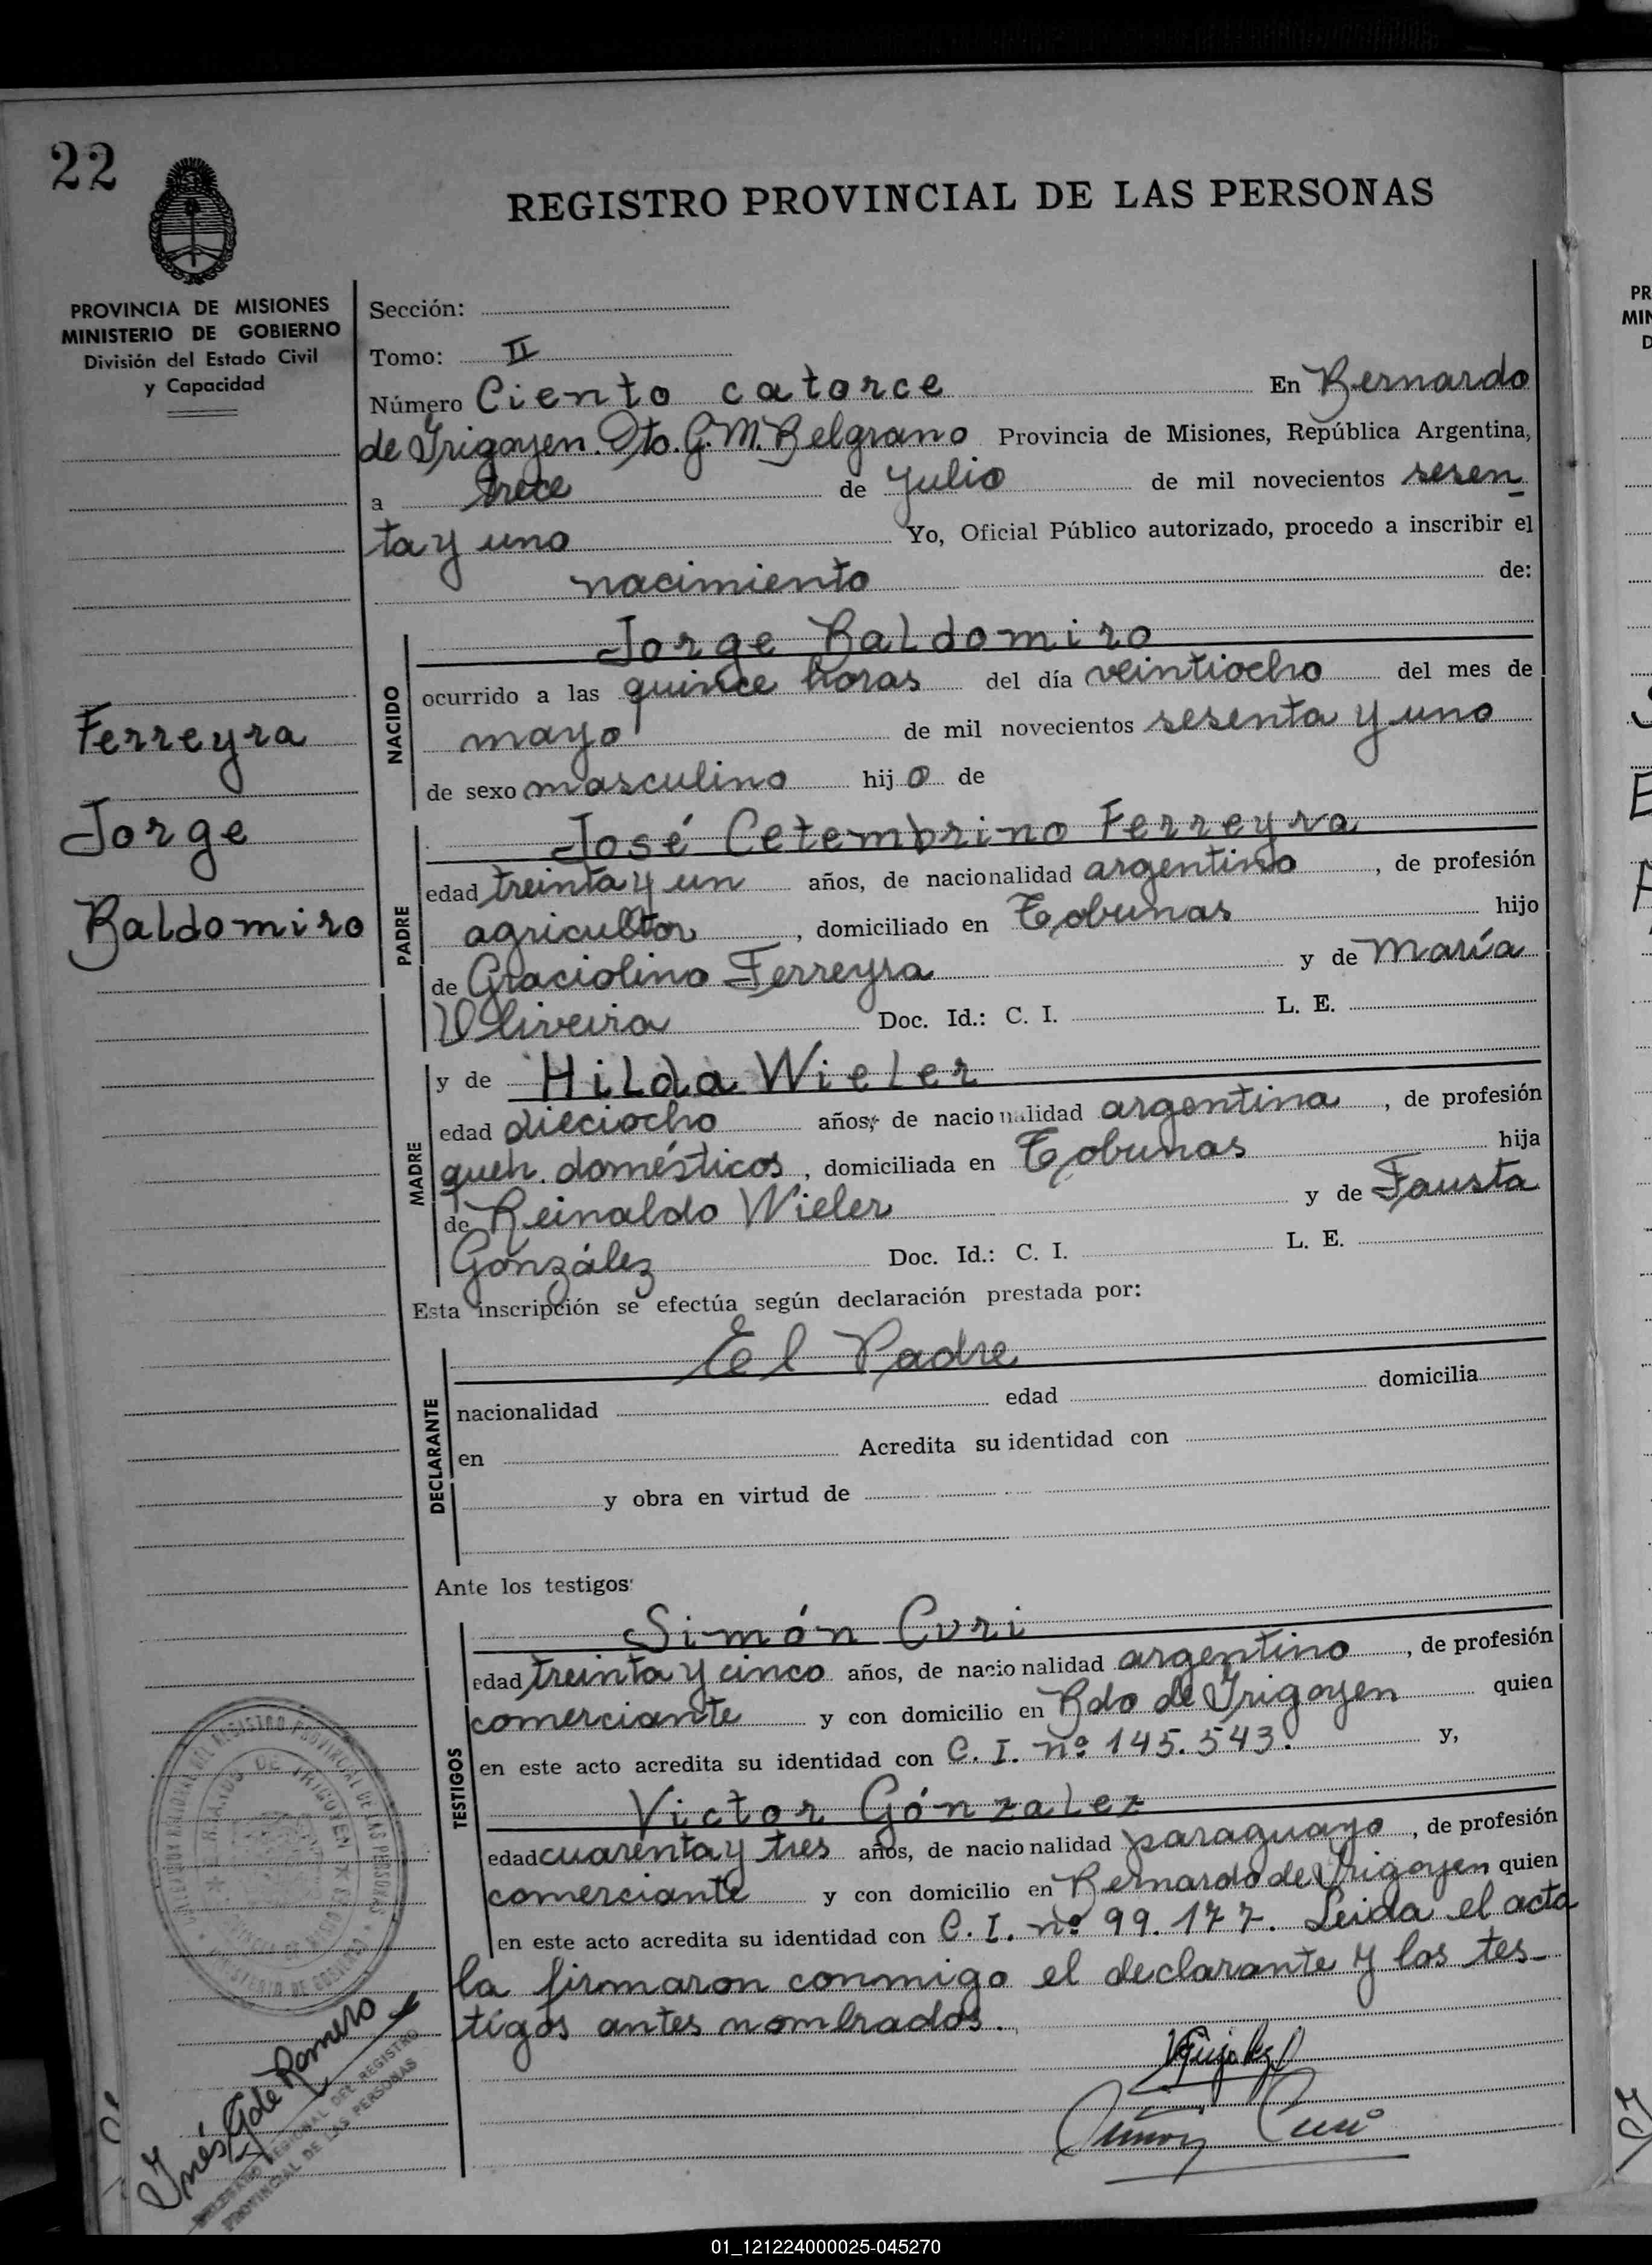 22
REGISTRO PROVINCIAL DE LAS PERSONAS
PROVINCIA DE MISIONES
MINISTERIO DE GOBIERNO
División del Estado Civil
y Capacidad
Ferreyra
Jorge
Baldomiro
Sección:
Tomo: II
Número Ciento catorce En Bernardo
de Irigoyen. Dto. G. M. Belgrano Provincia de Misiones, República Argentina,
a trece de Julio de mil novecientos sesen
ta y uno Yo, Oficial Público autorizado, procedo a inscribir el
nacimiento de:
NACIDO
Jorge Baldomiro
ocurrido a las quince horas del día veintiocho del mes de
mayo de mil novecientos sesenta y uno
de sexo masculino hij o de
PADRE
José Cetembrino Ferreyra
edad treinta y un años, de nacionalidad argentino, de profesión
agricultor, domiciliado en Tobunas hijo
de Graciolino Ferreyra y de María
Oliveira Doc. Id.: C. I. L. E.
MADRE
y de Hilda Wieler
edad dieciocho años, de nacionalidad argentina, de profesión
queh. domésticos, domiciliada en Tobunas hija
de Reinaldo Wieler y de Fausta
González Doc. Id.: C. I. L. E.
Esta inscripción se efectúa según declaración prestada por:
DECLARANTE
El Padre
nacionalidad edad domicilia
en Acredita su identidad con
y obra en virtud de
Ante los testigos
TESTIGOS
Simón Curi
edad treinta y cinco años, de nacionalidad argentino, de profesión
comerciante y con domicilio en Bdo de Irigoyen quien
en este acto acredita su identidad con C. I. nº 145.543. y,
Victor Gónzalez
edad cuarenta y tres años, de nacionalidad paraguayo, de profesión
comerciante y con domicilio en Bernardo de Irigoyen quien
en este acto acredita su identidad con C. I. nº 99.177. Leida el acta
la firmaron conmigo el declarante y los tes-
tigos antes nombrados.
Simón Curi
Inés G de Romero
REGIONAL DEL REGISTRO
PROVINCIAL DE LAS PERSONAS
01_121224000025-045270